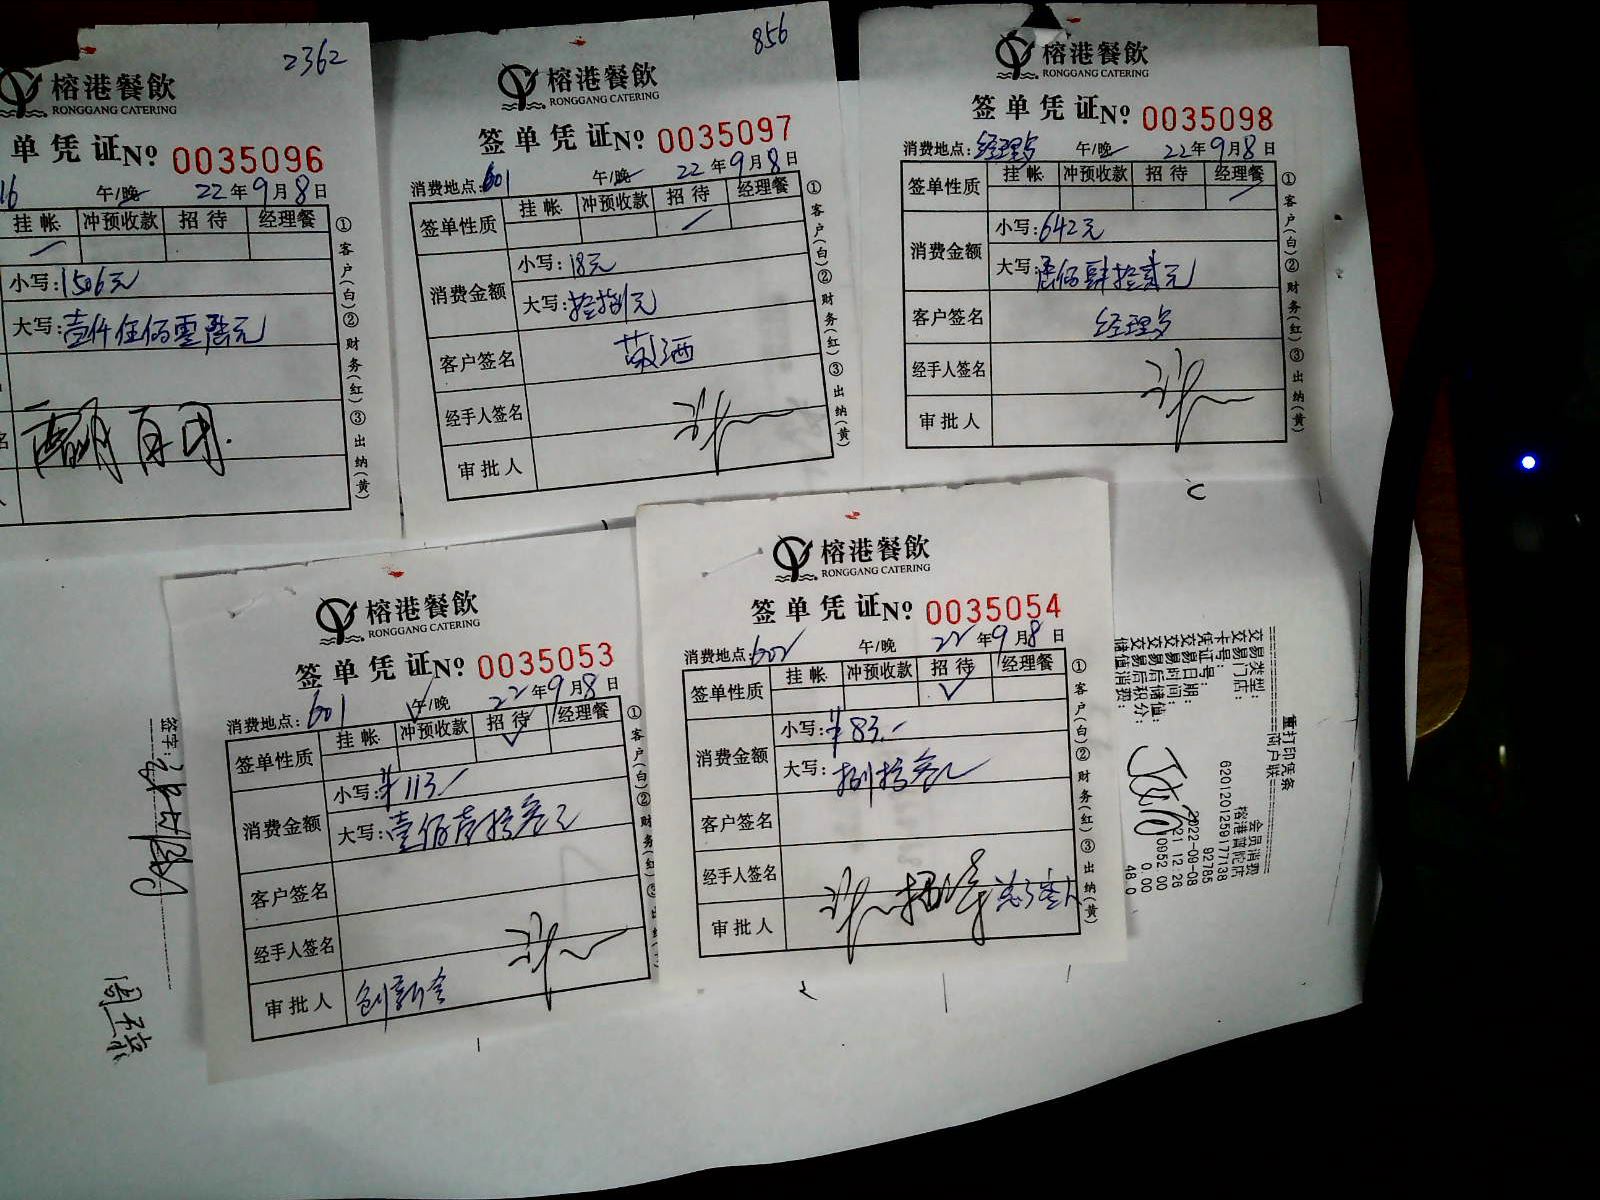 2362
榕港餐飲
RONGGANG CATERING
单凭证No 0035096
16 午/晚 22年9月8日
挂帐 冲预收款 招待 经理餐
小写:1506元
大写:壹仟伍佰零陆元
①客户(白)②财务(红)③出纳(黄)
856
榕港餐飲
RONGGANG CATERING
签单凭证No 0035097
消费地点:601 午/晚 22年9月8日
签单性质 挂帐 冲预收款 招待 经理餐
消费金额 小写:18元
大写:拾捌元
客户签名
经手人签名
审批人
①客户(白)②财务(红)③出纳(黄)
榕港餐飲
RONGGANG CATERING
签单凭证No 0035098
消费地点:经理 午/晚 22年9月8日
签单性质 挂帐 冲预收款 招待 经理餐
消费金额 小写:642元
大写:陆佰肆拾贰元
客户签名 经理
经手人签名
审批人
①客户(白)②财务(红)③出纳(黄)
榕港餐飲
RONGGANG CATERING
签单凭证No 0035053
消费地点:601 午/晚 22年9月8日
签单性质 挂帐 冲预收款 招待 经理餐
消费金额 小写:¥113/
大写:壹佰壹拾叁元
客户签名
经手人签名
审批人 创新会
①客户(白)②财务(红)
榕港餐飲
RONGGANG CATERING
签单凭证No 0035054
消费地点:602 午/晚 22年9月8日
签单性质 挂帐 冲预收款 招待 经理餐
消费金额 小写:¥83.-
大写:捌拾叁元
客户签名
经手人签名
审批人
①客户(白)②财务(红)③出纳(黄)
签字:
重打印凭条
商户联
交易类型: 会员消费
交易门店: 榕港普陀店
卡号: 6201201259177138
凭证号: 92785
交易日期: 2022-09-08
交易时间: 21 12 26
交易后储值: 0952.00
交易后积分: 0.00
储值消费: 48.0